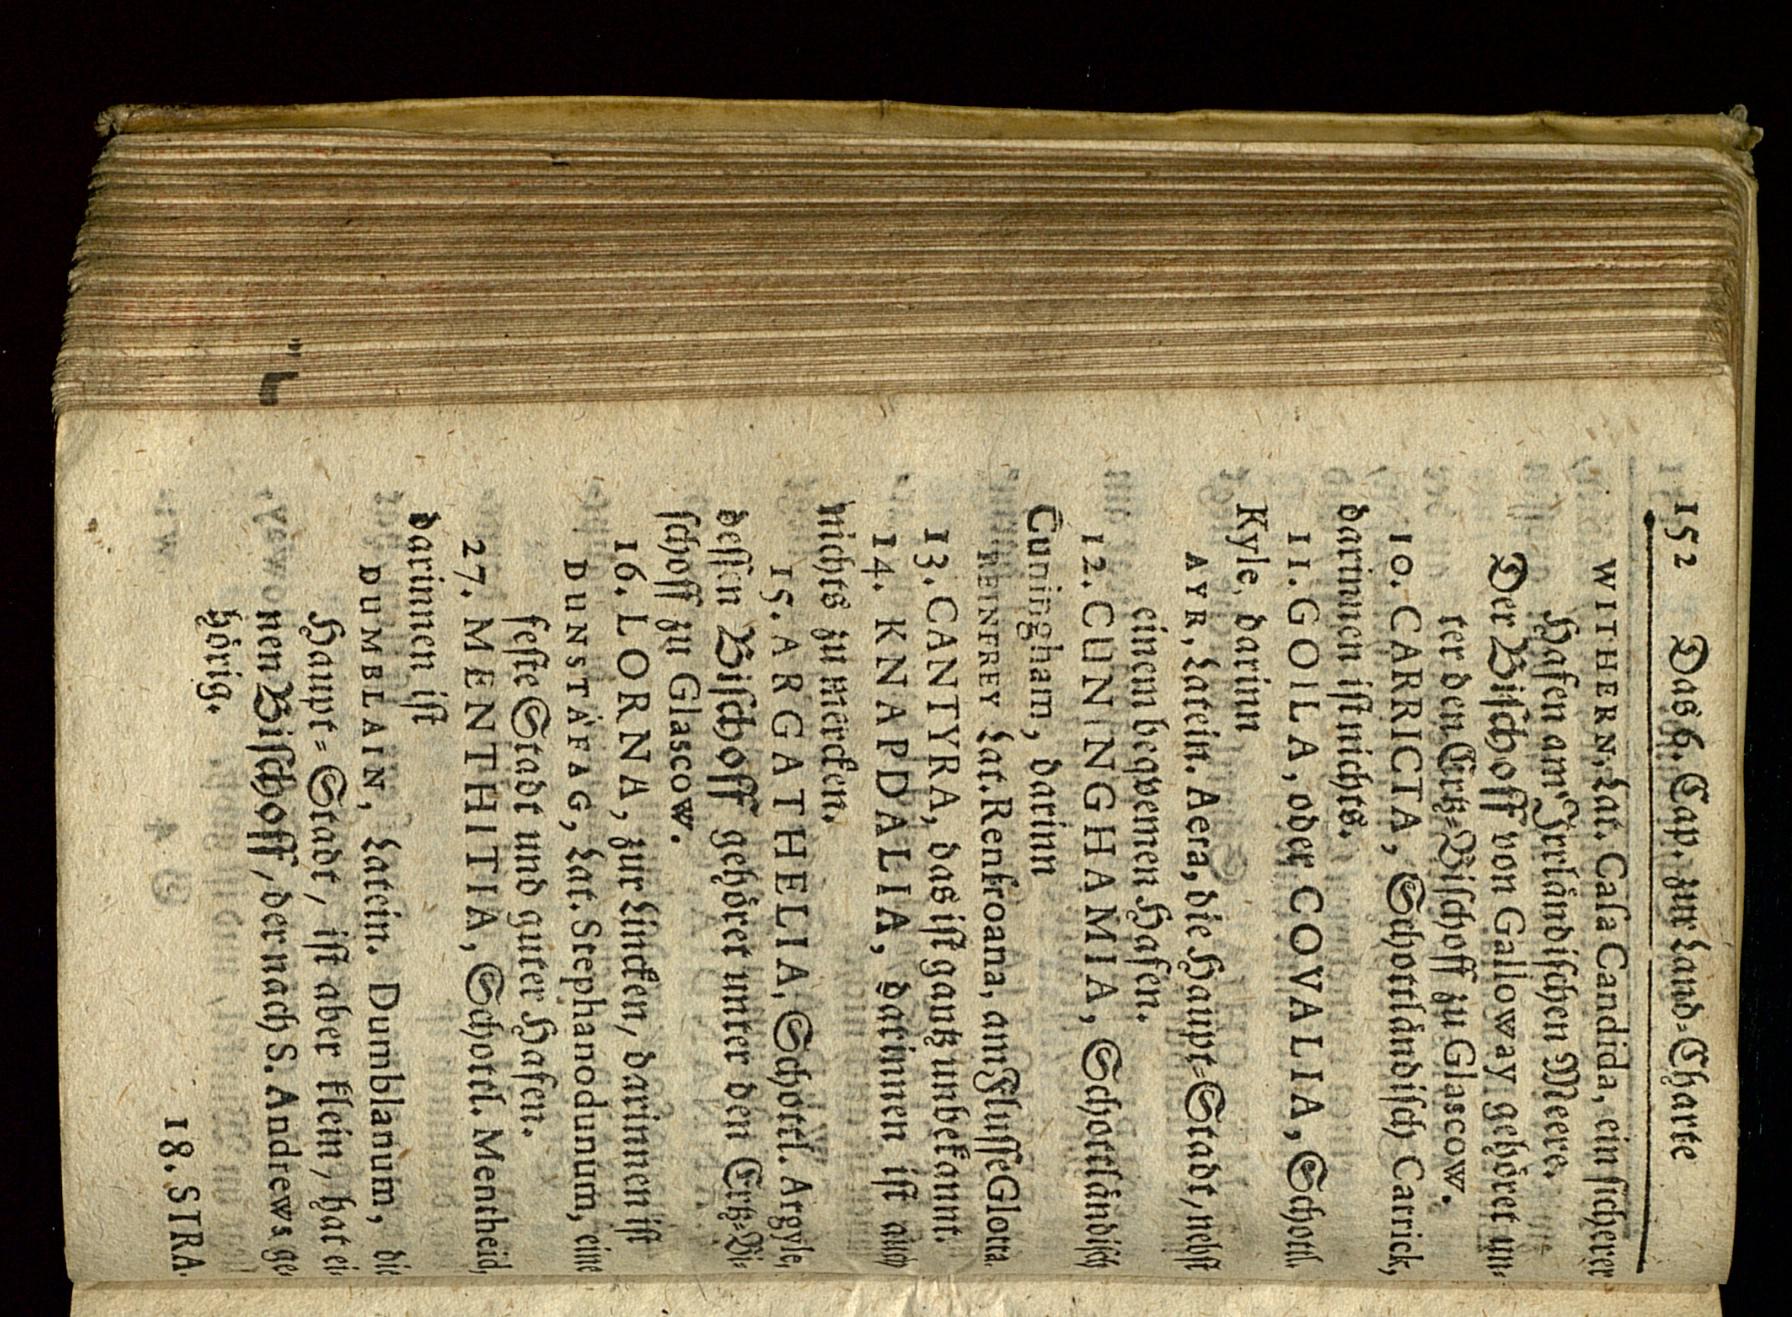 152 Das 6. Cap. zur Land-Charte
WITHERN, Lat. Caſa Candida, ein ſicherer
Hafen am Irrländiſchen Meere.
Der Biſchoff von Galloway gehöret un-
ter den Ertz-Biſchoff zu Glascow.
10. CARRICTA, Schottländiſch Carrick,
darinnen iſt nichts.
11. GOILA, oder COVALIA, Schottl.
Kyle, darinn
AYR, Latein. Aera, die Haupt-Stadt, nebſt
einem beqvemen Hafen.
12. CUNINGHAMIA, Schottländiſch
Cuningham, darinn
REINFREY Lat. Renfroana, am Fluſſe Glotta.
13. CANTYRA, das iſt gantz unbekannt.
14. KNAPDALIA, darinnen iſt auch
nichts zu mercken.
15. ARGATHELIA, Schottl. Argyle,
deſſen Biſchoff gehöret unter den Ertz-Bi-
ſchoff zu Glascow.
16. LORNA, zur Lincken, darinnen iſt
DUNSTAFAG, Lat. Stephanodunum, eine
feſte Stadt und guter Hafen.
27. MENTHITIA, Schottl. Mentheid,
darinnen iſt
DUMBLAIN, Latein. Dumblanum, die
Haupt-Stadt, iſt aber klein, hat ei-
nen Biſchoff, der nach S. Andrews ge-
hörig.
18. STRA-